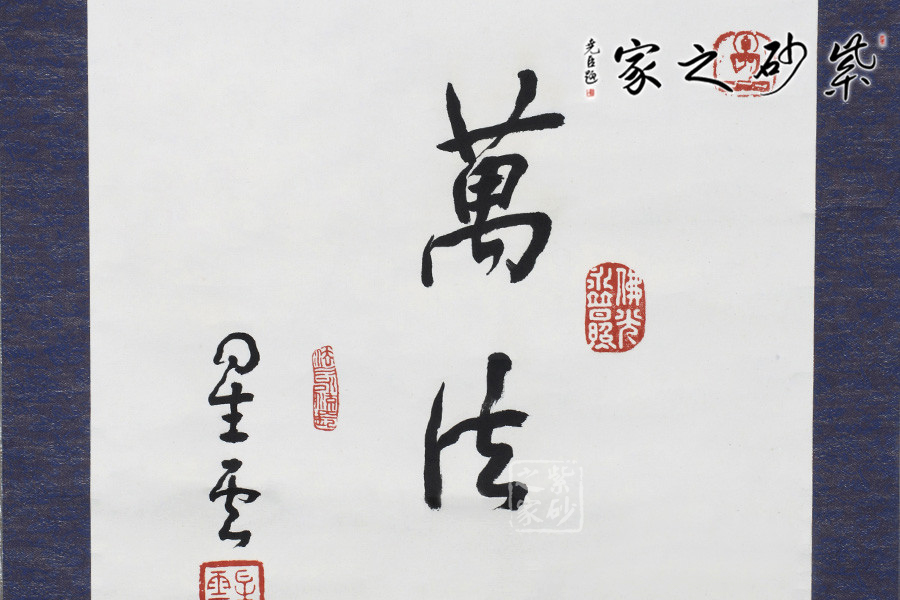 紫砂之家
萬法
佛光
永普照
星雲
紫砂
之家